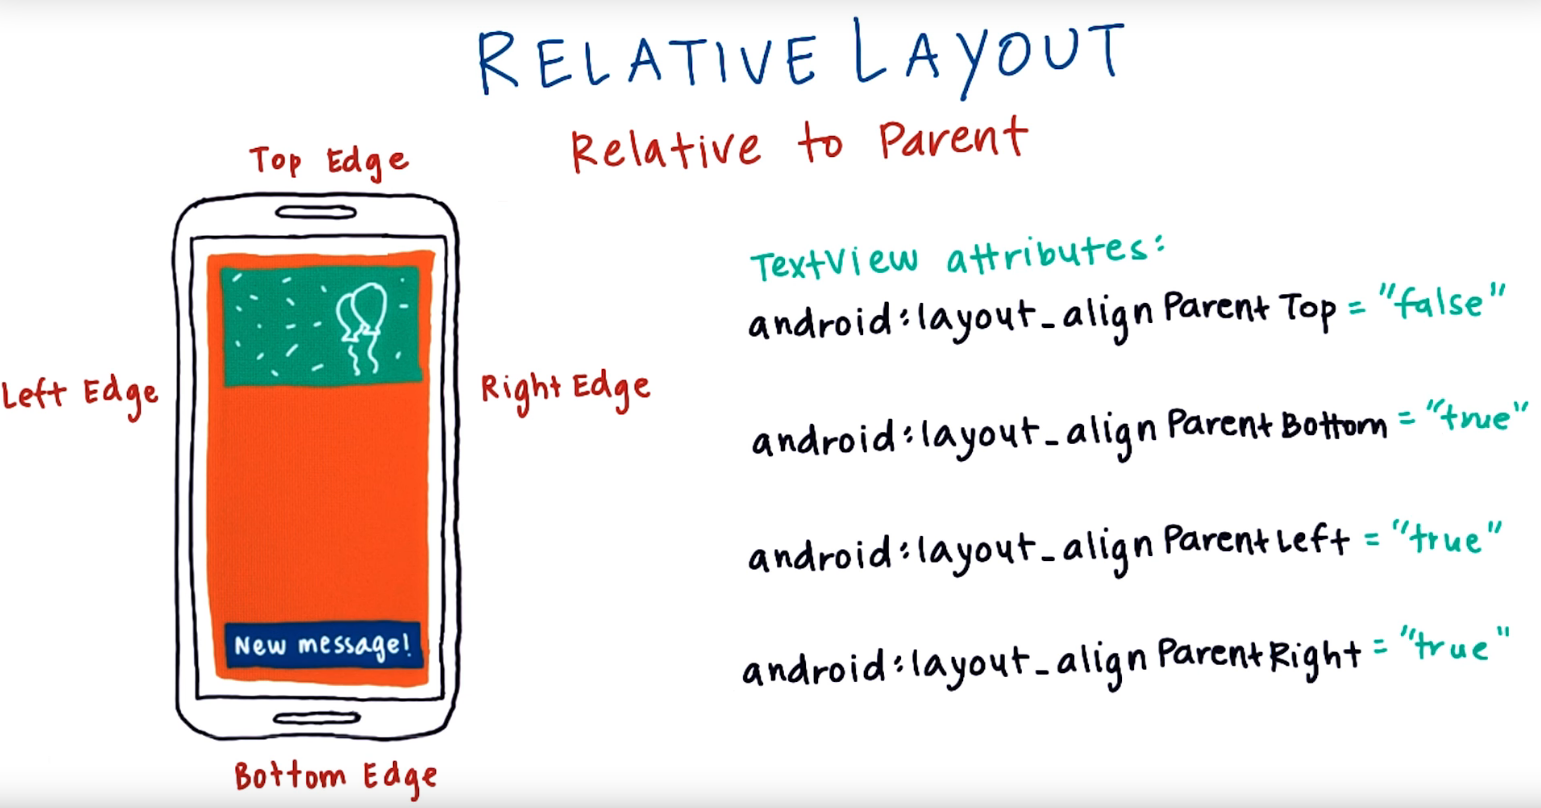 RELATIVE LAYOUT
Relative to Parent
Top Edge
Left Edge
Right Edge
New message!
Bottom Edge
TextView attributes:
android:layout_alignParentTop = "false"
android:layout_alignParentBottom = "true"
android:layout_alignParentLeft = "true"
android:layout_alignParentRight = "true"